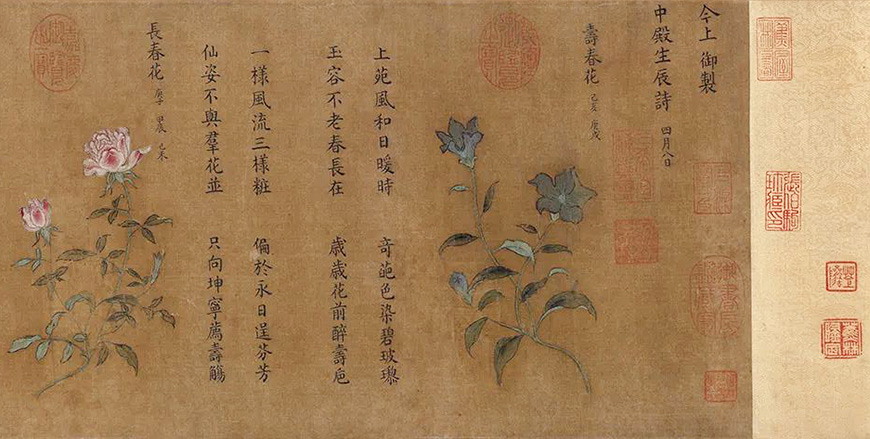 張伯駒
珍藏印
今上 御製
中殿生辰詩 四月八日
壽春花 己亥 庚戌
上苑風和日暖時 奇葩色染碧玻瓈
玉容不老春長在 歲歲花前醉壽巵
一樣風流三樣粧 偏於永日逞芬芳
仙姿不與羣花並 只向坤寧薦壽觴
長春花 庚子 甲辰 己未